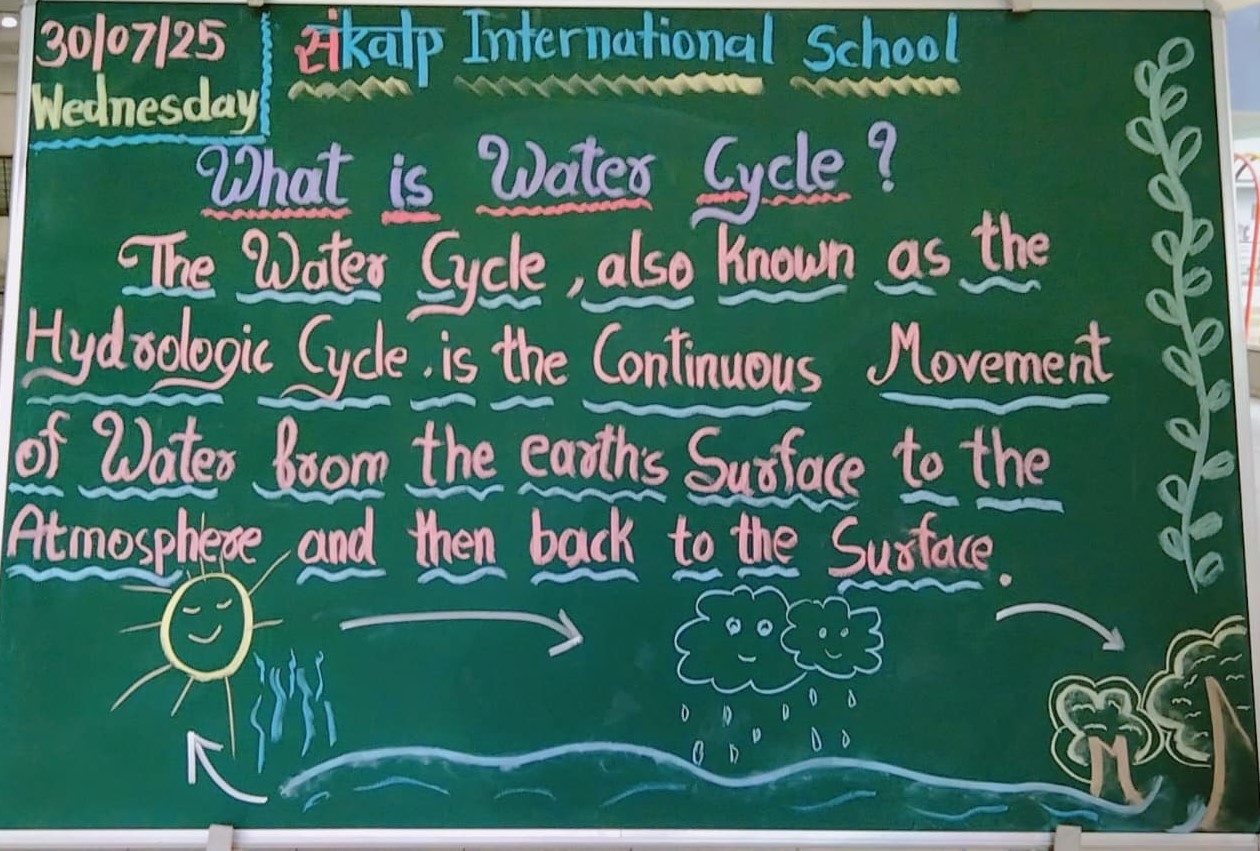 30/07/25
Wednesday
संkalp International School
What is Water Cycle ?
The Water Cycle , also known as the
Hydrologic Cycle . is the Continuous Movement
of Water from the earth's Surface to the
Atmosphere and then back to the Surface.